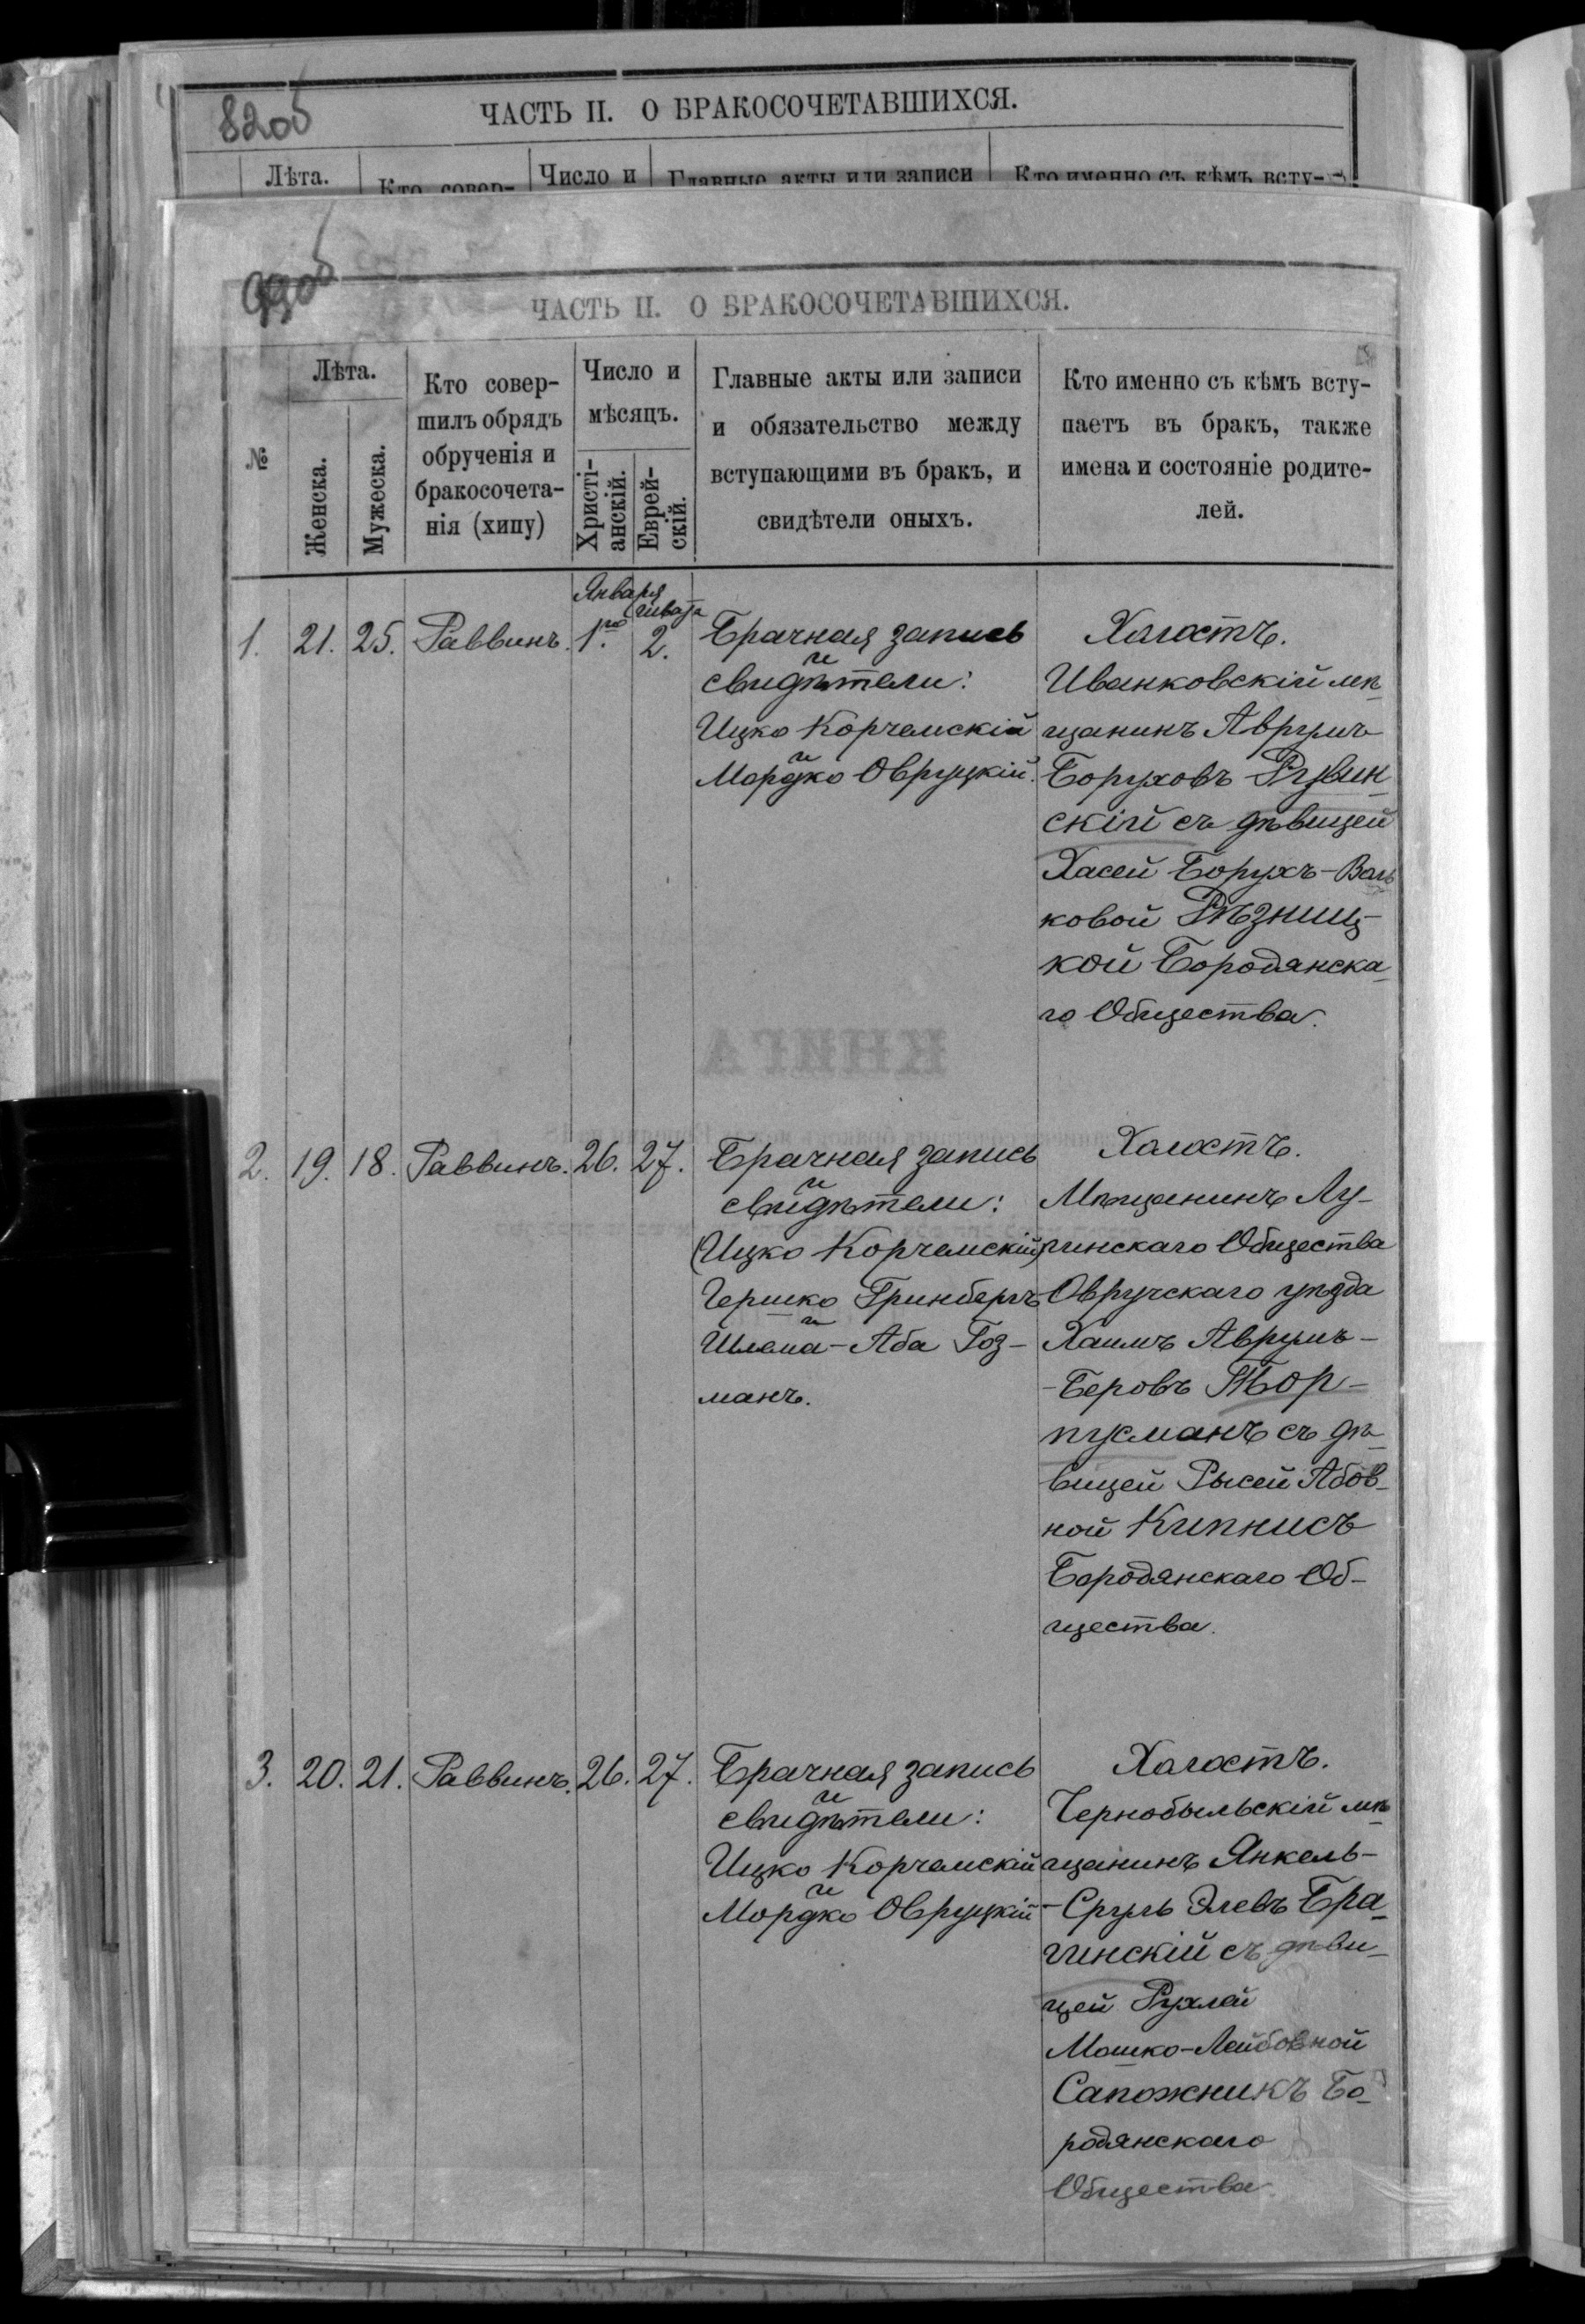 82об
ЧАСТЬ II. О БРАКОСОЧЕТАВШИХСЯ.
Лѣта. Кто совер- Число и Главные акты или записи Кто именно съ кѣмъ всту-
99об
ЧАСТЬ II. О БРАКОСОЧЕТАВШИХСЯ.
№
Лѣта.
Женска.
Мужеска.
Кто совер-
шилъ обрядъ
обрученія и
бракосочета-
нія (хипу)
Число и
мѣсяцъ.
Христі-
анскій.
Еврей-
скій.
Главные акты или записи
и обязательство между
вступающими въ бракъ, и
свидѣтели оныхъ.
Кто именно съ кѣмъ всту-
паетъ въ бракъ, также
имена и состояніе родите-
лей.
Января
Шватa
1. 21. 25. Раввинъ. 1го. 2.
Брачная запись
и
свидѣтели:
Ицко Корчемскій
и
Мордко Овруцкій.
Холостъ.
Иванковскій мѣ-
щанинъ Аврумъ
Боруховъ Рувин-
скій съ дѣвицей
Хасей Борухъ-Воль
ковой Рѣзниц-
кой Бородянска-
го Общества.
КНИГА
2. 19. 18. Раввинъ. 26. 27.
Брачная запись
и
свидѣтели:
(Ицко Корчемскій)
Гершко Гринбергъ
и
Шлема-Аба Гоз-
манъ.
Холостъ.
Мѣщанинъ Лу-
гинскаго Общества
Овручскаго уѣзда
Хаимъ Аврумъ-
-Беровъ Тор-
пусманъ съ дѣ-
вицей Рысей Абов-
ной Кипнисъ
Бородянскаго Об-
щества.
3. 20. 21. Раввинъ. 26. 27.
Брачная запись
и
свидѣтели:
Ицко Корчемскій
и
Мордко Овруцкій
Холостъ.
Чернобыльскій мѣ-
щанинъ Янкель-
-Сруль Элевъ Бра-
гинскій съ дѣви-
цей Рухлей
Мошко-Лейбовной
Сапожникъ Бо-
родянскаго
Общества.